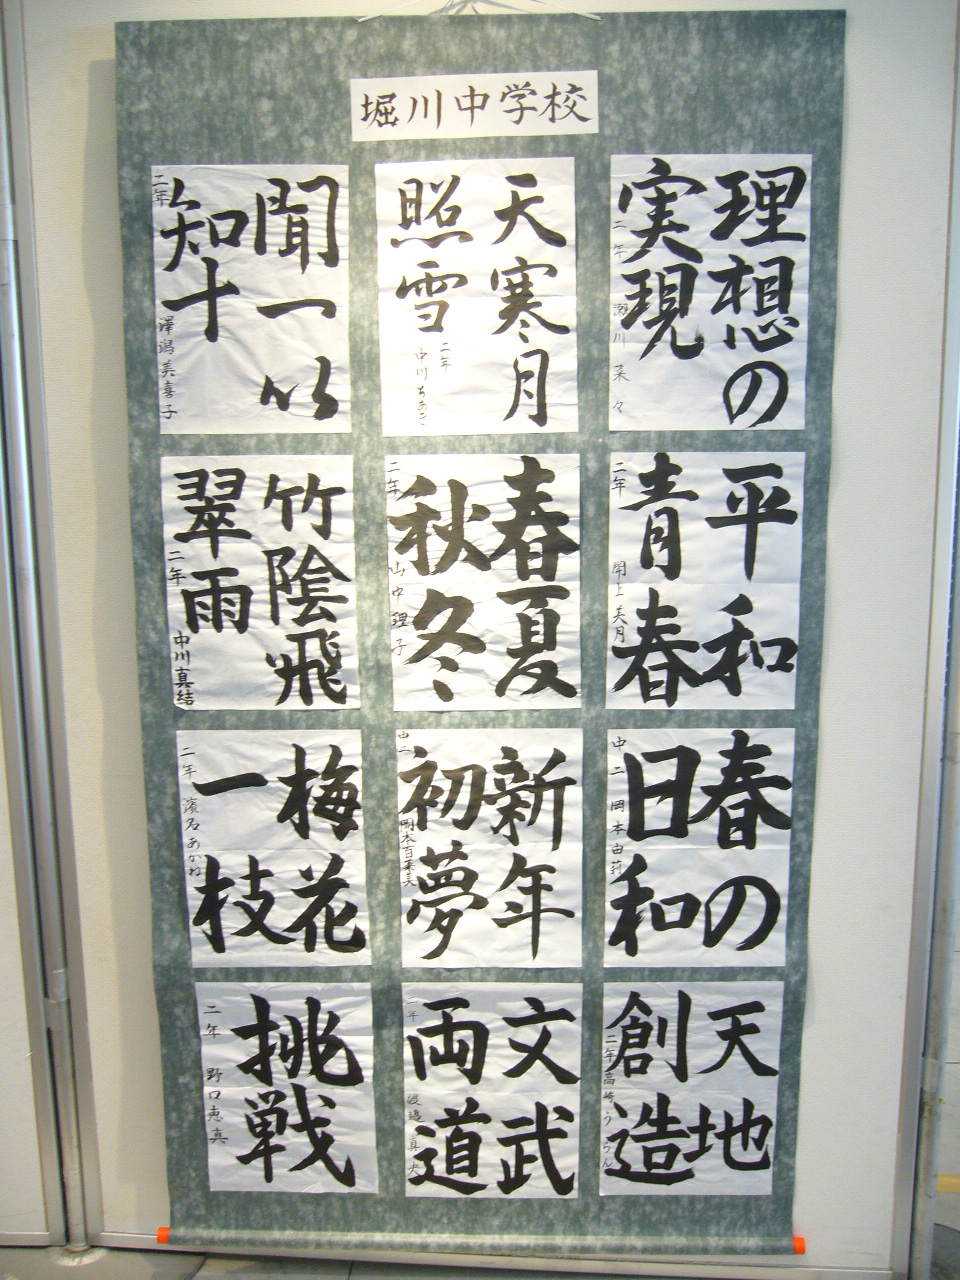 堀川中学校
理想の
実現
二年 瀬川 菜々
天寒月
照雪
二年
中川ちあき
聞一以
知十
二年 澤潟美喜子
平和
青春
二年 美月
春夏
秋冬
二年 山中理子
竹陰飛
翠雨
二年 中川真結
春の
日和
中二 岡本由莉
新年
初夢
中二 岡本百菜美
梅花
一枝
二年 濱名あかね
天地
創造
二年 高崎うらん
文武
両道
二年 渡邉真央
挑戦
二年 野口恵真